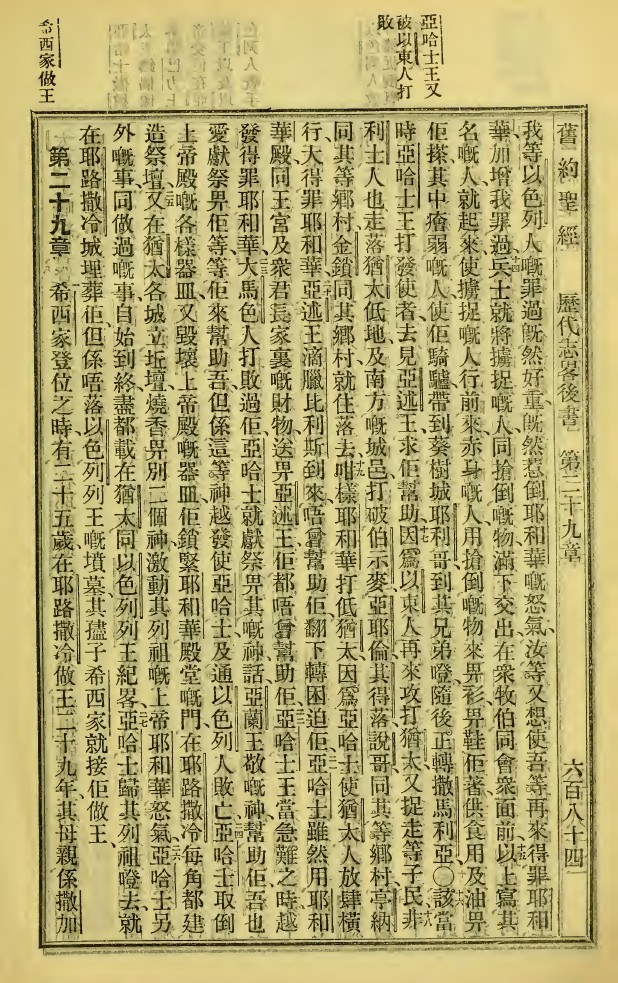 舊約聖經 歷代志畧後書 第二十九章 六百八十四
亞哈士王又
被以東人打
敗
我等以色列人嘅罪過旣然好重旣然惹倒耶和華嘅怒氣、汝等又想使吾等再來得罪耶和
華、加增我罪過、十四兵士就將擄捉嘅人同搶倒嘅物滿下交出在衆牧伯同會衆面前、十五以上寫其
名嘅人就起來、使擄捉嘅人行前來、赤身嘅人用搶倒嘅物來畀衫畀鞋佢著、供食用及油畀
佢搽、其中瘡弱嘅人使佢騎驢、帶到葵樹城耶利哥到其兄弟嗌、隨後正轉撒馬利亞○十六該當
時亞哈士王打發使者去見亞述王求佢幫助、十七因爲以東人再來攻打猶太又捉走等子民、十八非
利士人也走落猶太低地、及南方嘅城邑、打破伯示麥亞耶倫其得落說哥同其等鄉村、亭納
同其等鄉村、金鎖同其鄉村、就住落去、十九咁樣耶和華打低猶太、因爲亞哈士使猶太人放肆橫
行、大得罪耶和華、二十亞述王滴臘比利斯到來、唔曾幫助佢、翻下轉困迫佢、二一亞哈士雖然用耶和
華殿同王宮及衆君長家裏嘅財物送畀亞述王、佢都唔曾幫助佢、二二亞哈士王當急難之時越
發得罪耶和華、二三大馬色人打敗過佢、亞哈士就獻祭畀其嘅神、話、亞蘭王敬嘅神、幫助佢、吾也
愛獻祭畀佢等、等佢來幫助吾、但係這等神越發使亞哈士及通以色列人敗亡、二四亞哈士取倒
上帝殿嘅各樣器皿、又毀壞上帝殿嘅器皿、佢鎖緊耶和華殿堂嘅門、在耶路撒冷每角都建
造祭壇、二五又在猶太各城立坵壇燒香畀別二個神、激動其列祖嘅上帝耶和華怒氣、二六亞哈士另
外嘅事、同做過嘅事、自始到終、盡都載在猶太同以色列列王紀畧、二七亞哈士歸其列祖嗌去、就
在耶路撒冷城埋葬佢、但係唔落以色列列王嘅墳墓、其孻子希西家就接佢做王、
希西家做王
第二十九章 希西家登位之時有二十五歲、在耶路撒冷做王二十九年、其母親係撒加